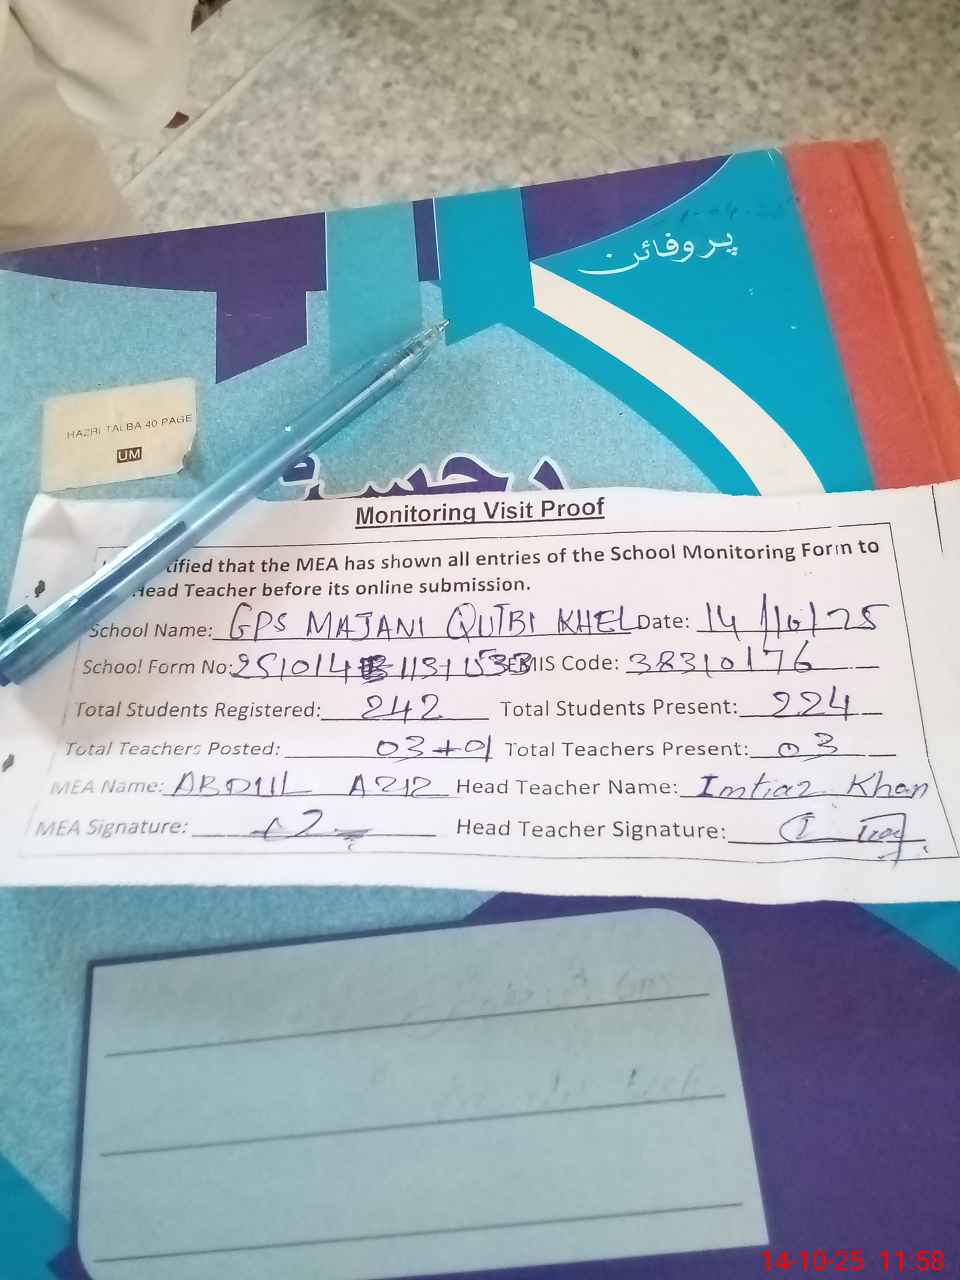 پروفائن
HAZRI TALBA 40 PAGE
UM
رجسٹر
Monitoring Visit Proof
that the MEA has shown all entries of the School Monitoring Form to
Head Teacher before its online submission.
School Name: GPS MAJANI QUTBI KHEL Date: 14/10/25
School Form No: EMIS Code: 38310176
Total Students Registered: 242 Total Students Present: 224
Total Teachers Posted: 03+01 Total Teachers Present: 03
MEA Name: ABDUL AZIZ Head Teacher Name: Imtiaz Khan
MEA Signature: Head Teacher Signature:
14-10-25 11:58